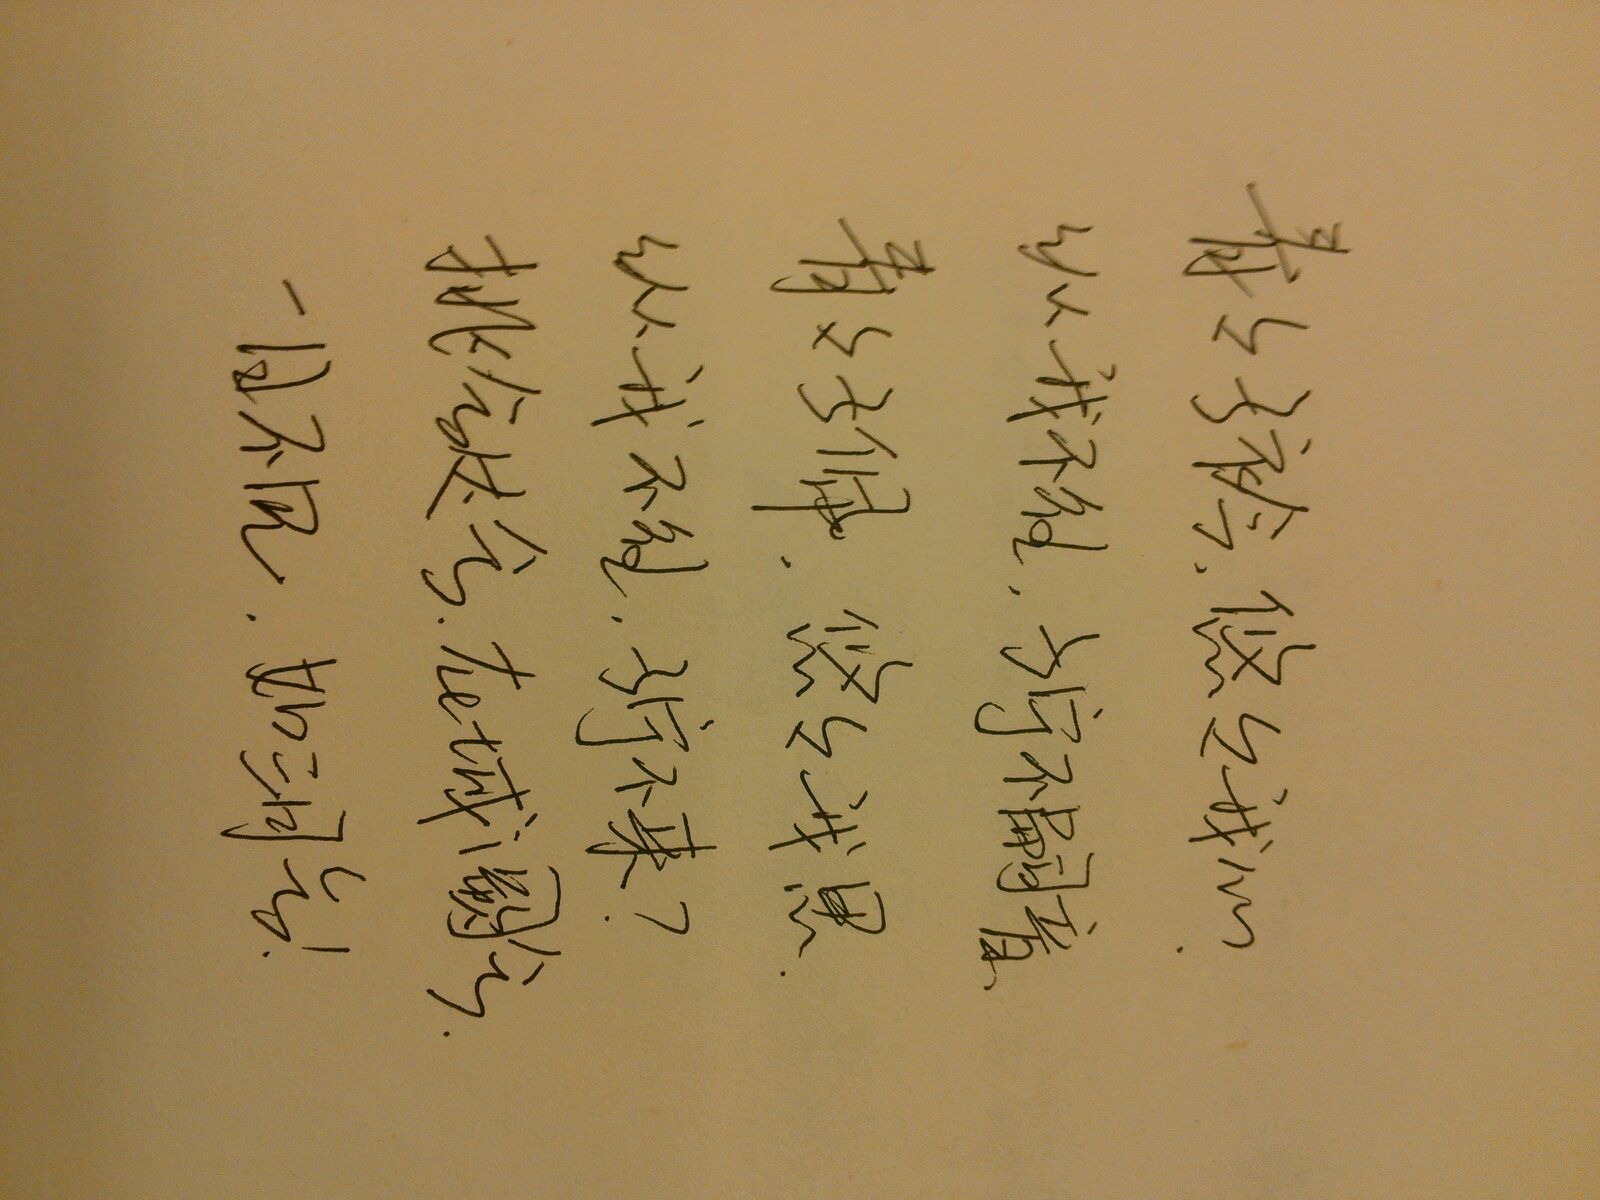 青々子衿.悠々我心.
纵我不往.子宁不嗣音.
青々子佩.悠々我思.
纵我不往.子宁不来?
挑兮达兮.在城阙兮.
一日不见.如三月兮!